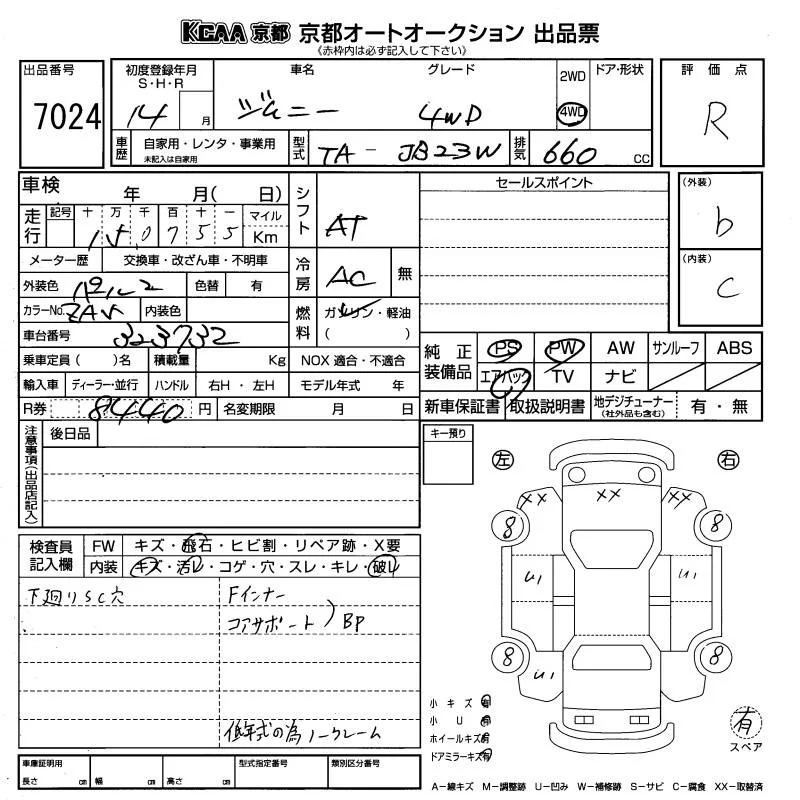 KCAA 京都 京都オートオークション 出品票
《赤枠内は必ず記入して下さい》
出品番号
7024
初度登録年月
S・H・R
14 月
車名
ジムニー
グレード
4WD
2WD
4WD
ドア・形状
評価点
R
車歴
自家用・レンタ・事業用
未記入は自家用
型式
TA-JB23W
排気
660 CC
車検 年 月( 日)
シフト
AT
走行
記号 十 万 千 百 十 一 マイル
1 5 0 7 5 5 Km
メーター歴 交換車・改ざん車・不明車
冷房
AC 無
外装色 パール2 色替 有
カラーNo. ZAV 内装色
燃料
ガソリン・軽油
( )
車台番号 323732
乗車定員( )名 積載量 Kg NOX 適合・不適合
輸入車 ディーラー・並行 ハンドル 右H・左H モデル年式 年
R券 8440 円 名変期限 月 日
セールスポイント
(外装)
b
(内装)
C
純正装備品
PS PW AW サンルーフ ABS
エアバッグ TV ナビ
新車保証書 取扱説明書 地デジチューナー
(社外品も含む)
有・無
注意事項(出品店記入)
後日品
キー預り
左
右
検査員記入欄
FW キズ・飛石・ヒビ割・リペア跡・X要
内装 キズ・汚レ・コゲ・穴・スレ・キレ・破レ
下廻りSC穴
Fインナー
コアサポート) BP
低年式の為ノークレーム
XX XX XX
8 8
U1 U1
8 8
U1
小キズ 有
小U 有
ホイールキズ 有
ドアミラーキズ 有
有
スペア
車庫証明用
長さ cm 幅 cm 高さ cm
型式指定番号
類別区分番号
A-線キズ M-調整跡 U-凹み W-補修跡 S-サビ C-腐食 XX-取替済